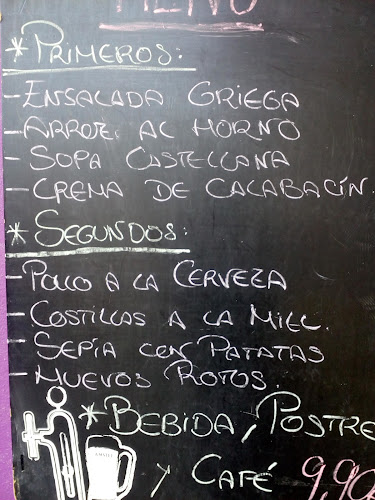 MENÚ
*PRIMEROS:
- ENSALADA GRIEGA
- ARROZ AL HORNO
- SOPA CASTELLANA
- CREMA DE CALABACÍN.
*SEGUNDOS:
- POLLO A LA CERVEZA
- COSTILLAS A LA MIEL.
- SEPIA CON PATATAS
- HUEVOS ROTOS.
*BEBIDA, POSTRE
Y CAFÉ 9,90